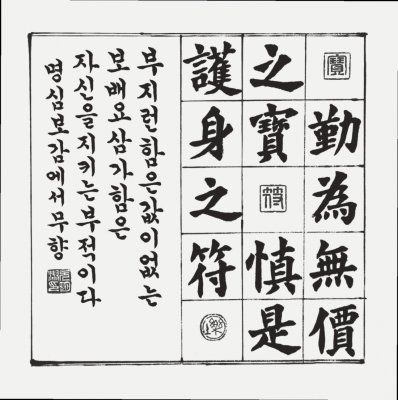 勤為無價
之寶慎是
護身之符
부지런함은값이없는
보배요삼가함은
자신을지키는부적이다
명심보감에서무향